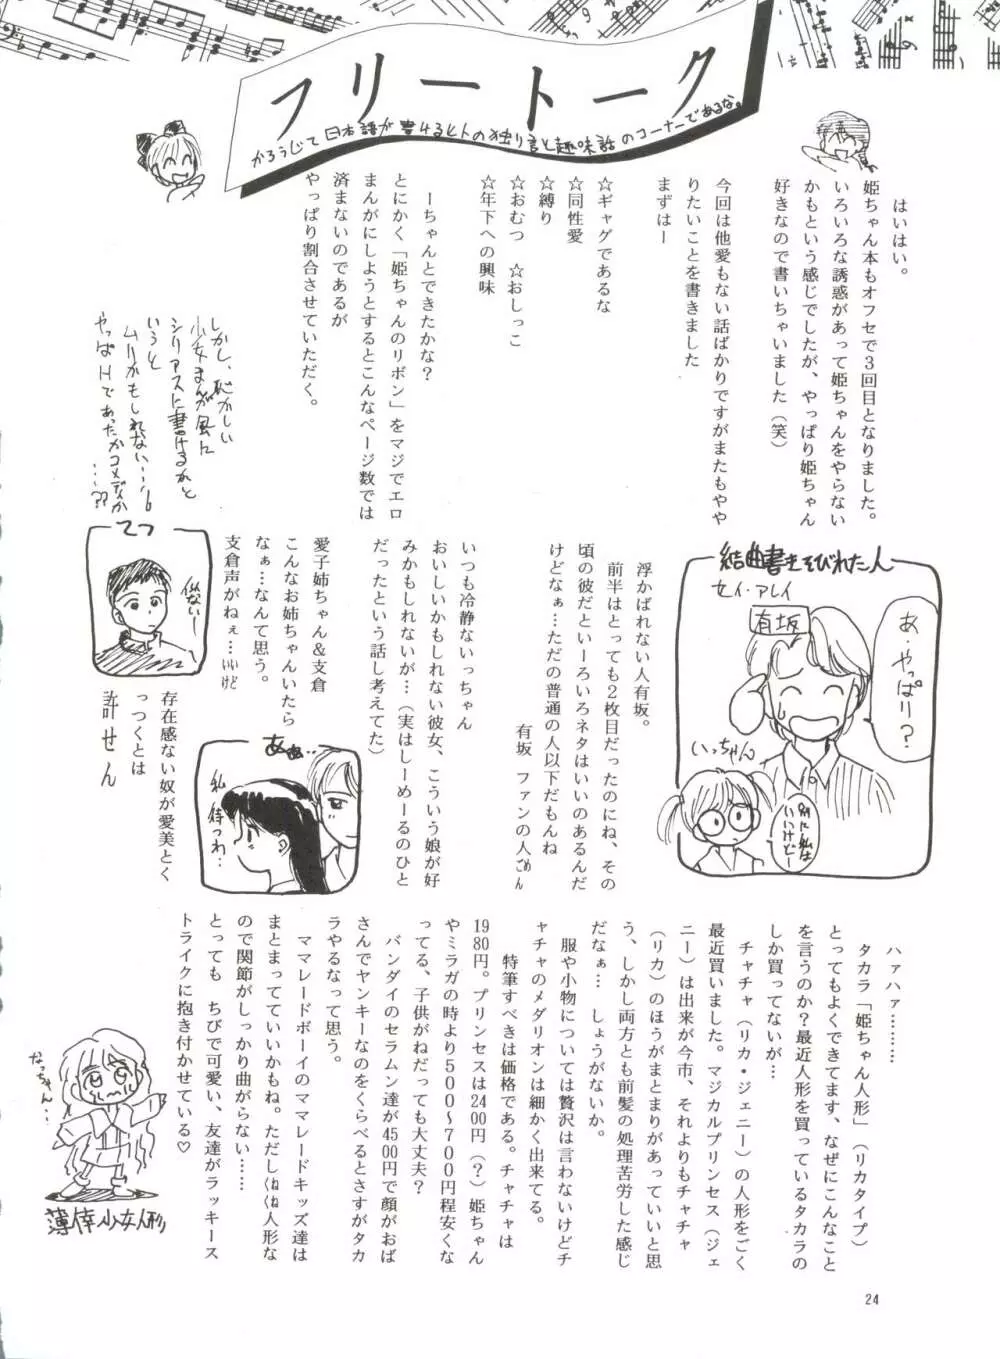 フリートーク
かろうじて日本語が書けるヒトの独り言と趣味話のコーナーであるな。
はいはい。
姫ちゃん本もオフセで３回目となりました。
いろいろな誘惑があって姫ちゃんをやらない
かもという感じでしたが、やっぱり姫ちゃん
好きなので書いちゃいました（笑）
今回は他愛もない話ばかりですがまたもやや
りたいことを書きました
まずはー
☆ギャグであるな
☆同性愛
☆縛り
☆おむつ　☆おしっこ
☆年下への興味
ーちゃんとできたかな？
とにかく「姫ちゃんのリボン」をマジでエロ
まんがにしようとするとこんなページ数では
済まないのであるが
やっぱり割合させていただく。
しかし、恥かしい
少女まんが風に
シリアスに書けるかと
いうと
ムリかもしれない…
やっぱHであったかコメディか
……??
結曲書きそびれた人
セイ・アレイ
有坂
あ・やっぱり？
いっちゃん
別に私は
いいけどー
浮かばれない人有坂。
前半はとっても２枚目だったのにね、その
頃の彼だといーろいろネタはいいのあるんだ
けどなぁ…ただの普通の人以下だもんね
有坂　ファンの人ごめん
いつも冷静ないっちゃん
おいしいかもしれない彼女、こういう娘が好
みかもしれないが…（実はしーめーるのひと
だったという話し考えてた）
愛子姉ちゃん＆支倉
こんなお姉ちゃんいたら
なぁ…なんて思う。
支倉声がねぇ…いいけど
てつ
あぁぁ…
私
待つわ…
存在感ない奴が愛美とく
っつくとは
許せん
ハァハァ…………
タカラ「姫ちゃん人形」（リカタイプ）
とってもよくできてます、なぜにこんなこと
を言うのか？最近人形を買っているタカラの
しか買ってないが…
チャチャ（リカ・ジェニー）の人形をごく
最近買いました。マジカルプリンセス（ジェ
ニー）は出来が今市、それよりもチャチャ
（リカ）のほうがまとまりがあっていいと思
う、しかし両方とも前髪の処理苦労した感じ
だなぁ…　しょうがないか。
服や小物については贅沢は言わないけどチ
ャチャのメダリオンは細かく出来てる。
特筆すべきは価格である。チャチャは
1980円。プリンセスは2400円（？）姫ちゃん
やミラガの時より５００～７００円程安くな
ってる、子供がねだっても大丈夫？
バンダイのセラムン達が4500円で顔がおば
さんでヤンキーなのをくらべるとさすがタカ
ラやるなって思う。
ママレードボーイのママレードキッズ達は
まとまってていいかもね。ただしくねくね人形な
ので関節がしっかり曲がらない……
とっても　ちびで可愛い、友達がラッキース
トライクに抱き付かせている♡
なっちゃん…
薄倖少女人形
24